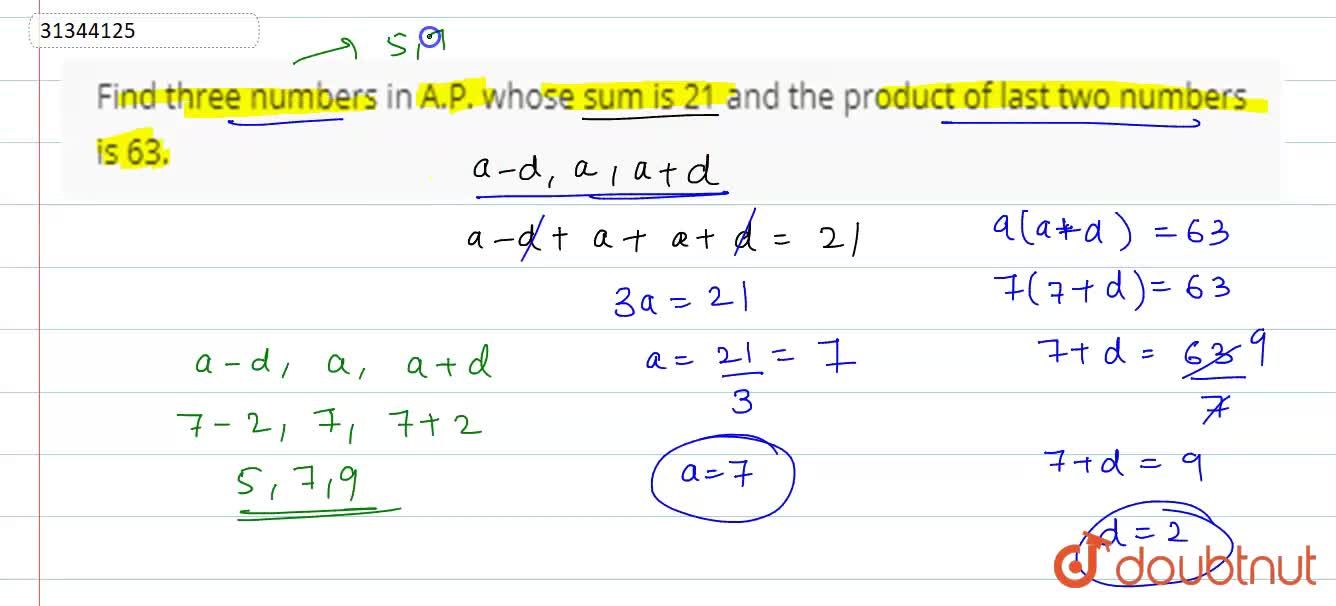 31344125
5,9
Find three numbers in A.P. whose sum is 21 and the product of last two numbers
is 63.
a-d, a, a+d
a-d + a + a+d = 21
3a = 21
a = 21/3 = 7
a=7
a(a+d) = 63
7(7+d) = 63
7+d = 63/7 9
7+d = 9
d=2
a-d, a, a+d
7-2, 7, 7+2
5,7,9
doubtnut